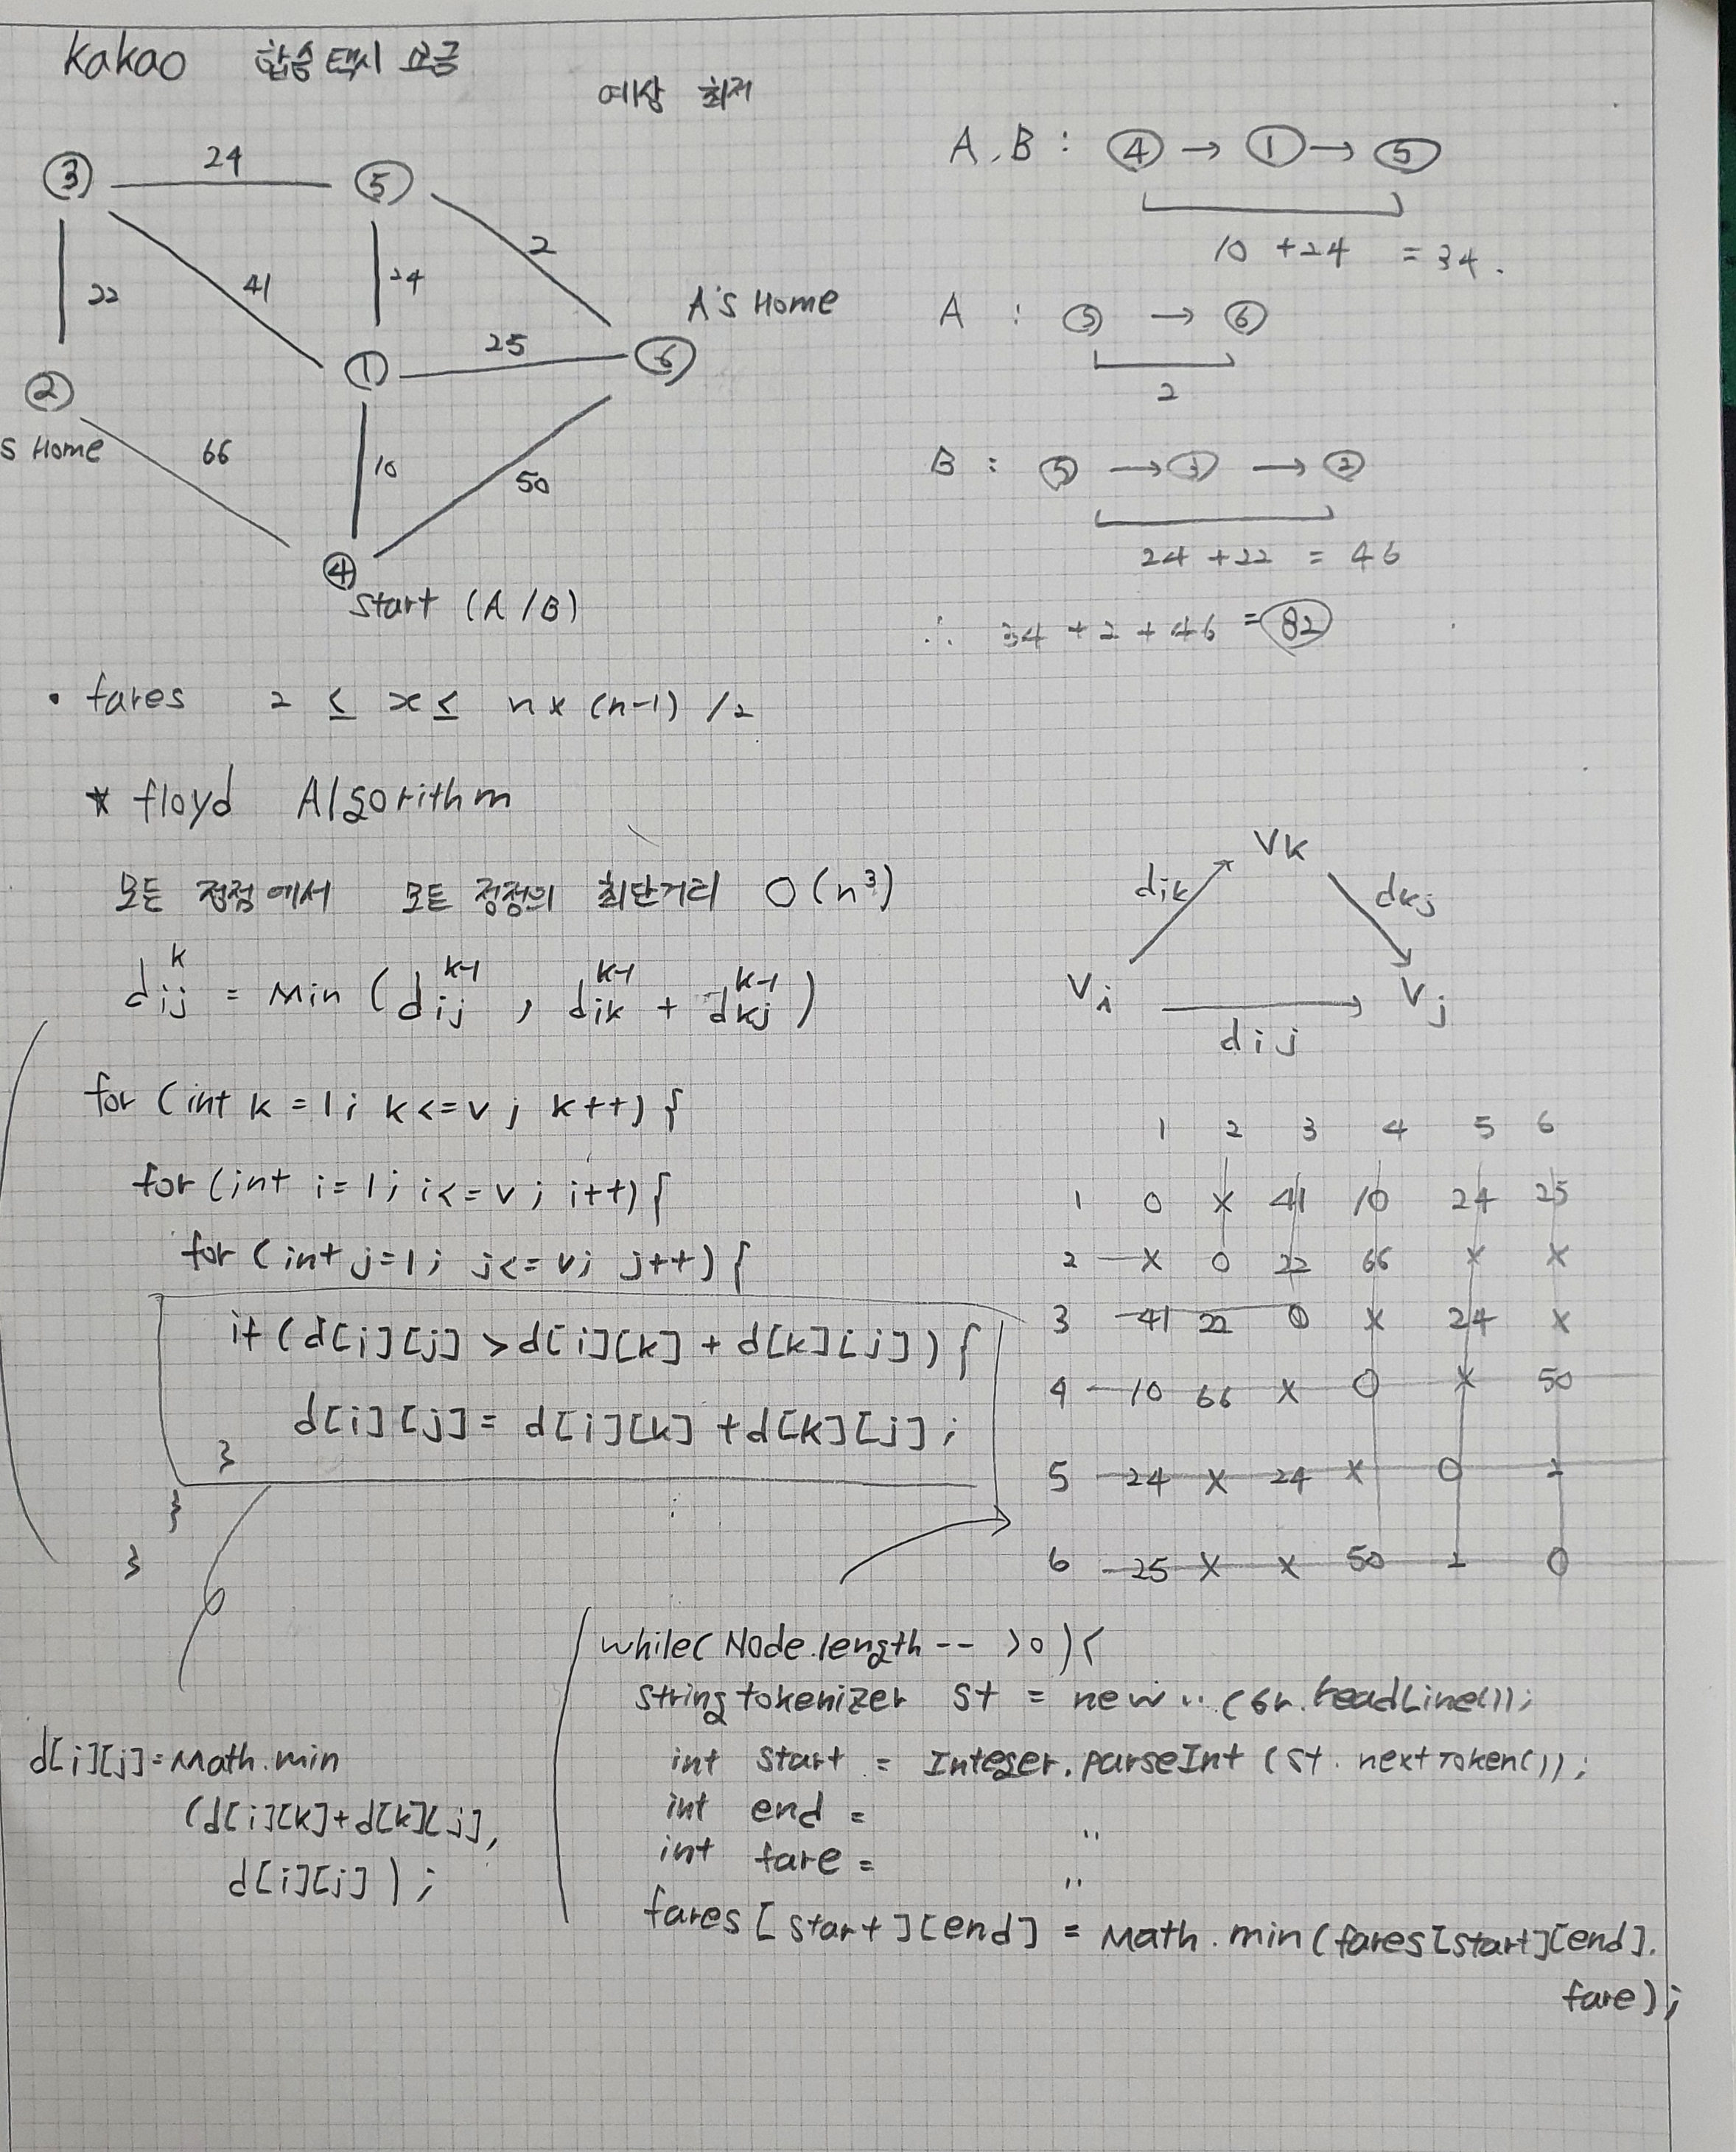 kakao 합승택시 요금
예상 최저
③ 24 ⑤
2
22 41 24
A's Home
① 25 ⑥
②
s Home 66 10 50
④
Start (A/B)
A,B : ④ → ① → ⑤
10 + 24 = 34.
A : ⑤ → ⑥
2
B : ⑤ → ③ → ②
24 + 22 = 46
∴ 34 + 2 + 46 = 82
• fares 2 ≤ x ≤ n x (n-1) /2
* floyd Algorithm
모든 정점에서 모든 정점의 최단거리 O(n³)
d_ij^k = Min (d_ij^k-1 , d_ik^k-1 + d_kj^k-1)
Vk
dik dkj
Vi Vj
dij
for (int k = 1; k<=v; k++) {
for (int i=1; i<=v; i++) {
for (int j=1; j<=v; j++) {
if (d[i][j] > d[i][k] + d[k][j]) {
d[i][j] = d[i][k] + d[k][j];
}
}
}
1 2 3 4 5 6
1 0 x 41 10 24 25
2 x 0 22 66 x x
3 41 22 0 x 24 x
4 10 66 x 0 x 50
5 24 x 24 x 0 2
6 25 x x 50 2 0
d[i][j] = Math.min
(d[i][k]+d[k][j],
d[i][j]);
while(Node.length-- >0){
String tokenizer st = new .. (br.readLine());
int start = Integer.parseInt (st.nextToken());
int end = "
int fare = "
fares[start][end] = Math.min(fares[start][end].
fare);